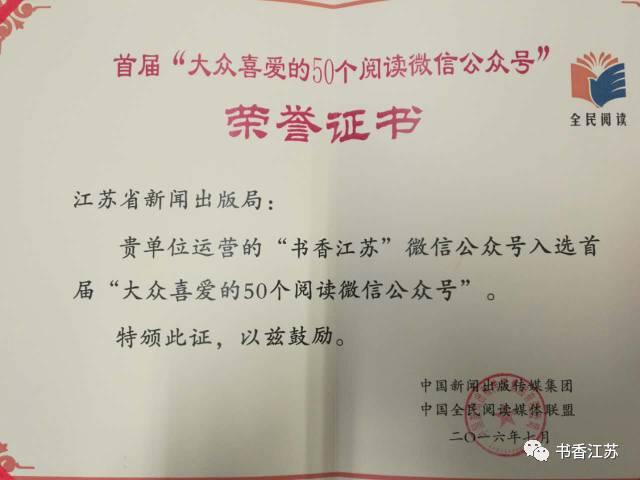 首届“大众喜爱的50个阅读微信公众号”
荣誉证书
全民阅读
江苏省新闻出版局：
贵单位运营的“书香江苏”微信公众号入选首
届“大众喜爱的50个阅读微信公众号”。
特颁此证，以兹鼓励。
中国新闻出版传媒集团
中国全民阅读媒体联盟
二〇一六年七月
书香江苏